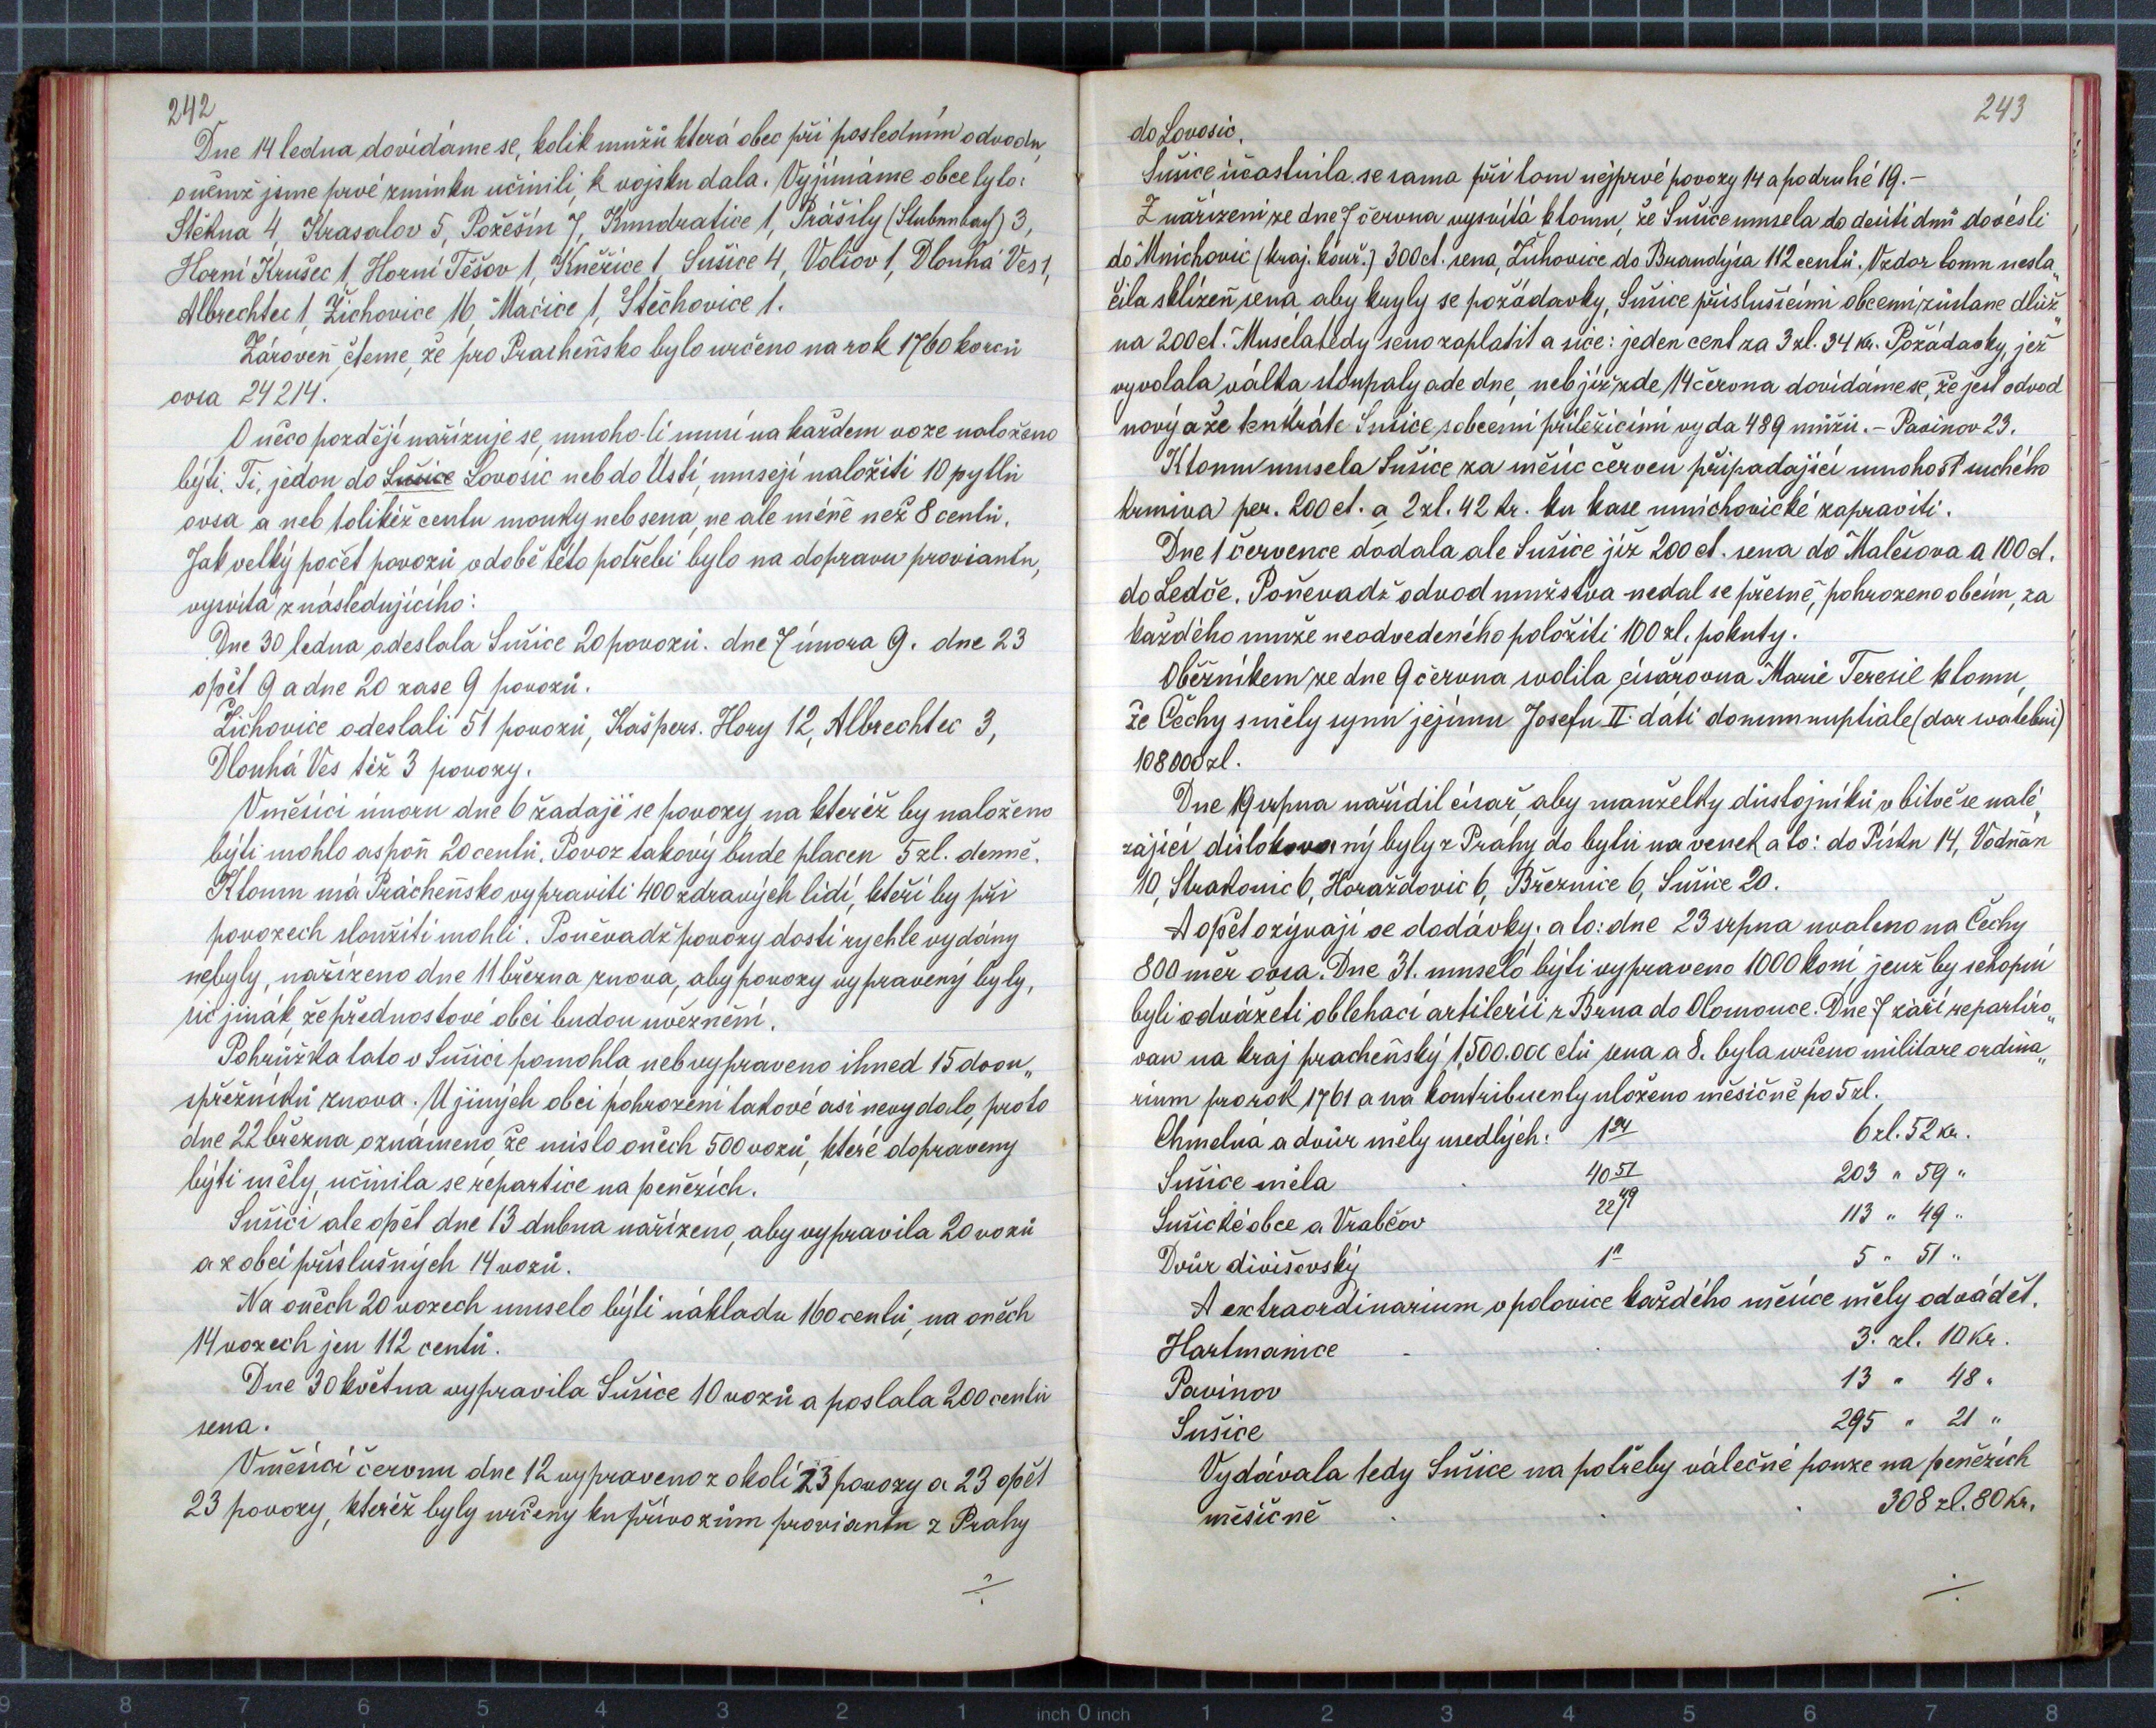 242
Dne 14 ledna dovídáme se, kolik mužů která obec při posledním odvodu,
o němž jsme prvé zmínku učinili, k vojsku dala. Vyjímáme obce tyto:
Stěkna 4, Krasalov 5, Požešín 7, Kundratice 1, Prášily (Stubenbach) 3,
Horní Krušec 1, Horní Těšov 1, Kněžice 1, Sušice 4, Volšov 1, Dlouhá Ves 1,
Albrechtec 1, Žichovice 16, Mačice 1, Stěchovice 1.
Zároveň čteme, že pro Pracheňsko bylo určeno na rok 1760 korců
ovsa 24214.
O něco později nařizuje se, mnoho-li musí na každem voze naloženo
býti. Ti, jedou do Sušice Lovosic neb do Ústí, musejí naložiti 10 pytlů
ovsa a neb tolikéž centu mouky neb sena, ne ale méně než 8 centů.
Jak velký počet povozů v době této potřebí bylo na dopravu proviantu,
vysvítá z následujícího:
Dne 30 ledna odeslala Sušice 20 povozů. dne 7 února 9. dne 23
opět 9 a dne 20 zase 9 povozů.
Žichovice odeslali 51 povozů, Kašpers. Hory 12, Albrechtec 3,
Dlouhá Ves též 3 povozy.
V měsíci únoru dne 6 žadají se povozy na kteréž by naloženo
býti mohlo aspoň 20 centů. Povoz takový bude placen 5 zl. denně.
K tomu má Prácheňsko vypraviti 400 zdravých lidí, kteří by při
povozech sloužiti mohli. Poněvadž povozy dosti rychle vydány
nebyly, nařízeno dne 11 března znova, aby povozy vypravený byly,
sic jinák, že přednostové obcí budou uvězněni.
Pohrůžka tato v Sušici pomohla neb vypraveno ihned 15 dvou„
spřežníků znova. U jiných obcí pohrození takové asi nevydalo, proto
dne 22 března oznámeno, že místo oněch 500 vozů, které dopraveny
býti měly, učinila se repartice na penězích.
Sušici ale opět dne 13 dubna nařízeno, aby vypravila 20 vozů
a z obcí příslušných 14 vozů.
Na oněch 20 vozech muselo býti nákladu 160 centů, na oněch
14 vozech jen 112 centů.
Dne 30 května vypravila Sušice 10 vozů a poslala 200 centů
sena.
V měsíci červnu dne 12 vypraveno z okolí 23 povozy a 23 opět
23 povozy, kteréž byly určeny ku přívozům proviantu z Prahy
÷
243
do Lovosic.
Sušice účastnila se sama při tom nejprvé povozy 14 a podruhé 19.-
Z nářízení ze dne 7 června vysvítá k tomu, že Sušice musela do desíti dnů dovésti
do Mnichovic (kraj. kouř.) 300 ct. sena, Žichovice do Brandýsa 112 centů. Vzdor tomu nesta„
čila sklizeň sena, aby kryly se požádavky, Sušice příslušícími obcemi zůstane dluž„
na 200 ct. Musela tedy seno zaplatit a sice: jeden cent za 3 zl. 34 kr. Požádavky, jež
vyvolala válka stoupaly ode dne, neb již zde 14 června dovídáme se, že jest odvod
nový a že tenkráte Sušice s obcemi příležícími vyda 489 mužů. - Pavinov 23.
K tomu musela Sušice za měsíc červen připadající mnohost suchého
krmiva per. 200 ct. a 2 zl. 42 kr. ku kase mnichovické zapraviti.
Dne 1 července dodala ale Sušice již 200 ct. sena do Malešova a 100 ct.
do Ledče. Poněvadž odvod mužstva nedal se přesně, pohrozeno obcím, za
každého muže neodvedeného položiti 100 zl. pokuty.
Oběžníkem ze dne 9 června svolila císařovna Marie Teresie k tomu,
že Čechy směly synu jejímu Josefu II. dáti donum nuptiale (dar svatební)
108000 zl.
Dne 19 srpna nařídil císař, aby manželky důstojníků v bitvě se nalé„
zající dislokovaný byly z Prahy do bytů na venek a to: do Písku 14, Vodňan
10, Strakonic 6, Horažďovic 6, Březnice 6, Sušice 20.
A opět ozývají se dodávky: a to: dne 23 srpna uvaleno na Čechy
800 měr ovsa. Dne 31. muselo býti vypraveno 1000 koní, jenž by schopni
byli odvážeti oblehací artilerii z Brna do Olomouce. Dne 7 září repartiro„
van na kraj pracheňský 1,500.000 ctů sena a 8. byla určeno militare ordina„
rium pro rok 1761 a na kontribuenty uloženo měsíčně po 5 zl.
Chmelná a dvůr měly usedlých: 1 24 6 zl. 52 kr.
Sušice měla . 40 51 203 " 59 "
Sušické obce a Vrabčov 22 49 113 " 49 "
Dvůr divišovský 1 5 " 51 "
A extraordinarium v polovice každého měsíce měly odvádět.
Hartmanice . . 3. zl. 10 kr.
Pavinov 13 " 48 "
Sušice 295 " 21 "
Vydávala tedy Sušice na potřeby válečné pouze na penězích
měsíčně . . . 308 zl. 80 kr.
÷
9 8 7 6 5 4 3 2 1 inch 0 inch 1 2 3 4 5 6 7 8